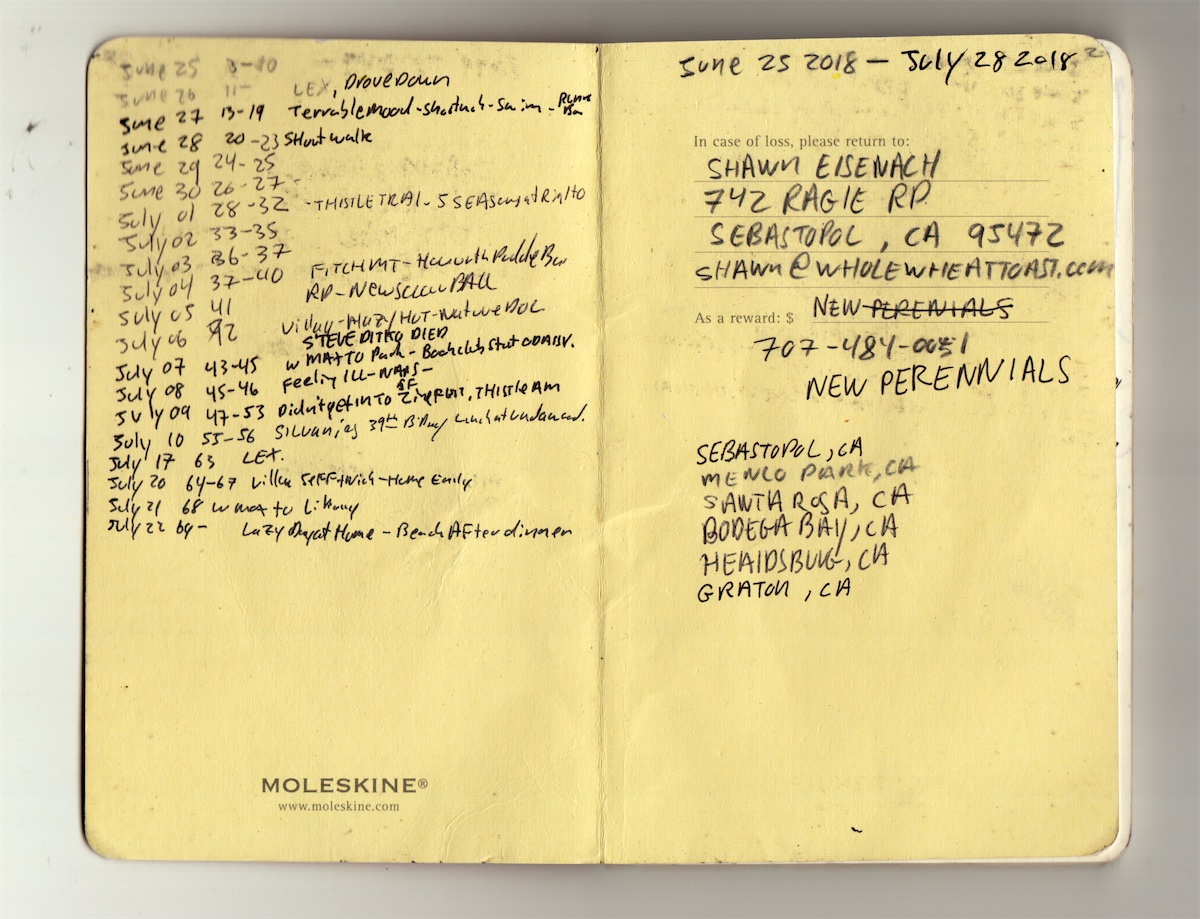 June 25 3-10
June 26 11- LEX, Drove Down
June 27 13-19 Terrable mood - - Swim -
June 28 20-23 Short walk
June 29 24-25
June 30 26-27-
July 01 28-32 - THISTLE TRIAL - 5 SEASons at Rialto
July 02 33-35
July 03 36-37
July 04 37-40 FITCH MT - Howorth Paddle
July 05 41 RP - New BALL
July 06 42 Village - Hazy Hot - Nature
STEVE DITKO DIED
July 07 43-45 W MAX TO Park - Bookclub
July 08 45-46 Feeling ILL - NAPS -
SF
July 09 47-53 Didn't get INTO Zine, THISTLE AM
July 10 55-56 39th Bday Lunch at
July 17 63 LEX.
July 20 64-67 - Home Early
July 21 68 W MAX to Library
July 22 69- Lazy Day at Home - Beach AFter dinner
MOLESKINE®
www.moleskine.com
June 25 2018 - July 28 2018
In case of loss, please return to:
SHAWN EISENACH
742 RAGLE RD
SEBASTOPOL, CA 95472
SHAWN@WHOLEWHEATTOAST.com
As a reward: $ NEW PERENIALS
707-484-0051
NEW PERENNIALS
SEBASTOPOL, CA
MENLO PARK, CA
SANTA ROSA, CA
BODEGA BAY, CA
HEALDSBURG, CA
GRATON, CA